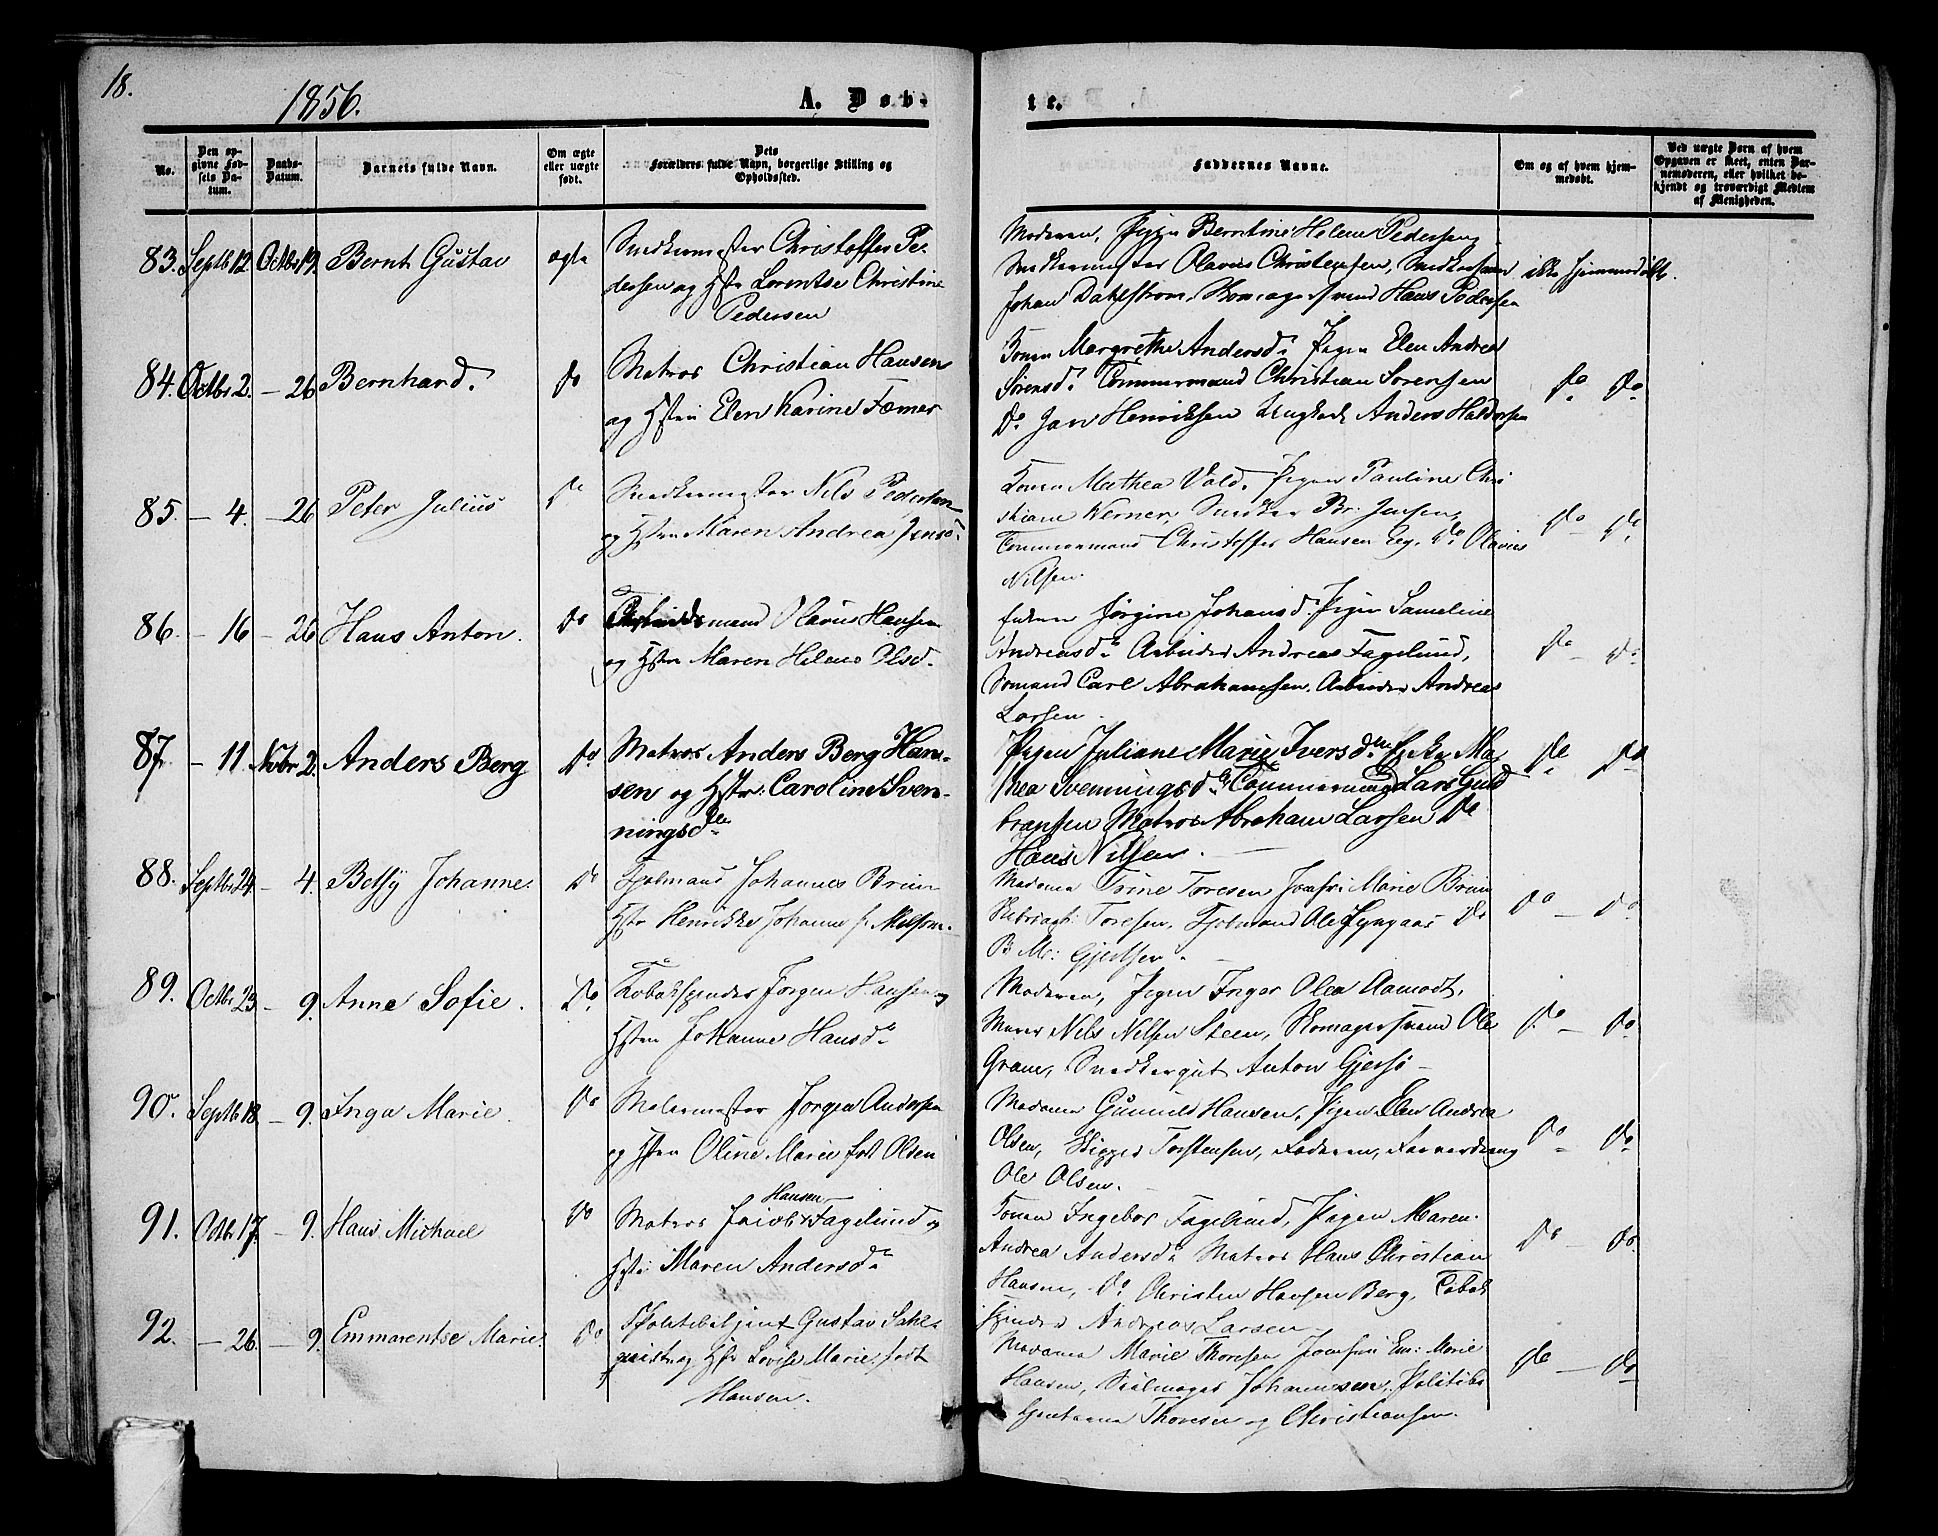 18.
1856.
A. Døb-
te.
No.
Den op-
givne Fød-
sels Da-
tum.
Daabs-
Datum.
Barnets fulde Navn.
Om ægte
eller uægte
født.
Dets
Forældres fulde Navn, borgerlige Stilling og
Opholdssted.
Faddernes Navne.
Om og af hvem hjem-
medøbt.
Ved uægte Børn af hvem
Opgaven er skeet, enten Bar-
nemoderen, eller hvilket be-
kjendt og troværdigt Medlem
af Menigheden.
83. Septbr 12. Octbr 19. Bernt Gustav ægte
Snedkermester Christoffer Pe-
dersen og Hstr Lorentse Christine
Pedersen
Moderen, Pigen Berntine Helene Pedersen,
Snedkermester Olavus Christensen, Snedkersvend
Johan Dahlstrøm, Skomagersvend Hans Pedersen
ikke hjemmedøbt.
84. Octbr 2. – 26 Bernhard. Do
Matros Christian Hansen
og Hstru Elen Karine
Konen Margrethe Andersd. Pigen Elen Andrea
Sørensd. Tømmermand Christian Sørensen
Do Jan Henriksen Anders Haldorsen
Do Do
85. – 4. – 26 Peter Julius Do
Snedkermester Nils Pedersen
og Hstru Maren Andrea Jensd.
Konen Mathea Vold. Pigen Pauline Chri
stiane Werner, Snedker Br. Jensen,
Tømmermand Christoffer Hansen Eeg, Do Olavus
Nilsen.
Do – Do
86. – 16 – 26 Hans Anton. Do
Arbeidsmand Olavus Hansen
og Hstru Maren Helene Olsd.
Jørgine Johansd. Pigen Sameline
Andreasd. Arbeider Andreas Fagelund,
Sømand Carl Abrahamsen. Arbeider Andreas
Larsen.
Do – Do
87. – 11 Novbr 2. Anders Berg Do
Matros Anders Berg Han-
sen og Hstr. Caroline Sven-
ningsd.
Pigen Juliane Marie Iversd. Ma-
thea Svenningsd. Tømmermand Lars Guld
brandsen Matros Abraham Larsen Do
Hans Nilsen.
Do Do
88. Septbr 24. – 4. Betsy Johanne. Do
Johannes Bruun
Hstr Henrikke Johanne f.
Madame Trine Toresen Jomfru Marie Bruun
Toresen, Ole Do
B. M. Gjertsen.
Do – Do
89. Octbr 23 – 9. Anne Sofie. Do
Tobakspinder Jørgen Hansen og
Hstru Johanne Hansd.
Moderen, Pigen Inger Olea Aamodt,
Murer Nils Nilsen Steen, Skomagersvend Ole
Grane, Snedkergut Anton Gjersø –
Do – Do
90. Septbr 18. – 9. Inga Marie. Do
Malermester Jørgen Andersen
og Hstru Oline Marie født Olsen
Madame Gunnild Hansen, Pigen Elen Andrea
Olsen, Skipper Torstensen, Faderen, Farverdreng
Ole Olsen.
Do – Do
91. Octbr 17. – 9. Hans Michael Do
Hansen
Matros Jacob Fagelund og
Hstr Maren Andersd.
Konen Ingebor Fagelund, Pigen Maren
Andrea Andersd. Matros Hans Christian
Hansen, Do Christen Hansen Berg, Tobak
spinder Andreas Larsen
Do – Do.
92. – 26. – 9. Emmarentse Marie. Do
Politibetjent Gustav Sahl-
quist og Hstr Lovise Marie født
Hansen.
Madame Marie Thoresen Jomfru Em: Marie
Hansen, Johannesen. Politibe
tjenterne Thoresen og Christiansen.
Do – Do